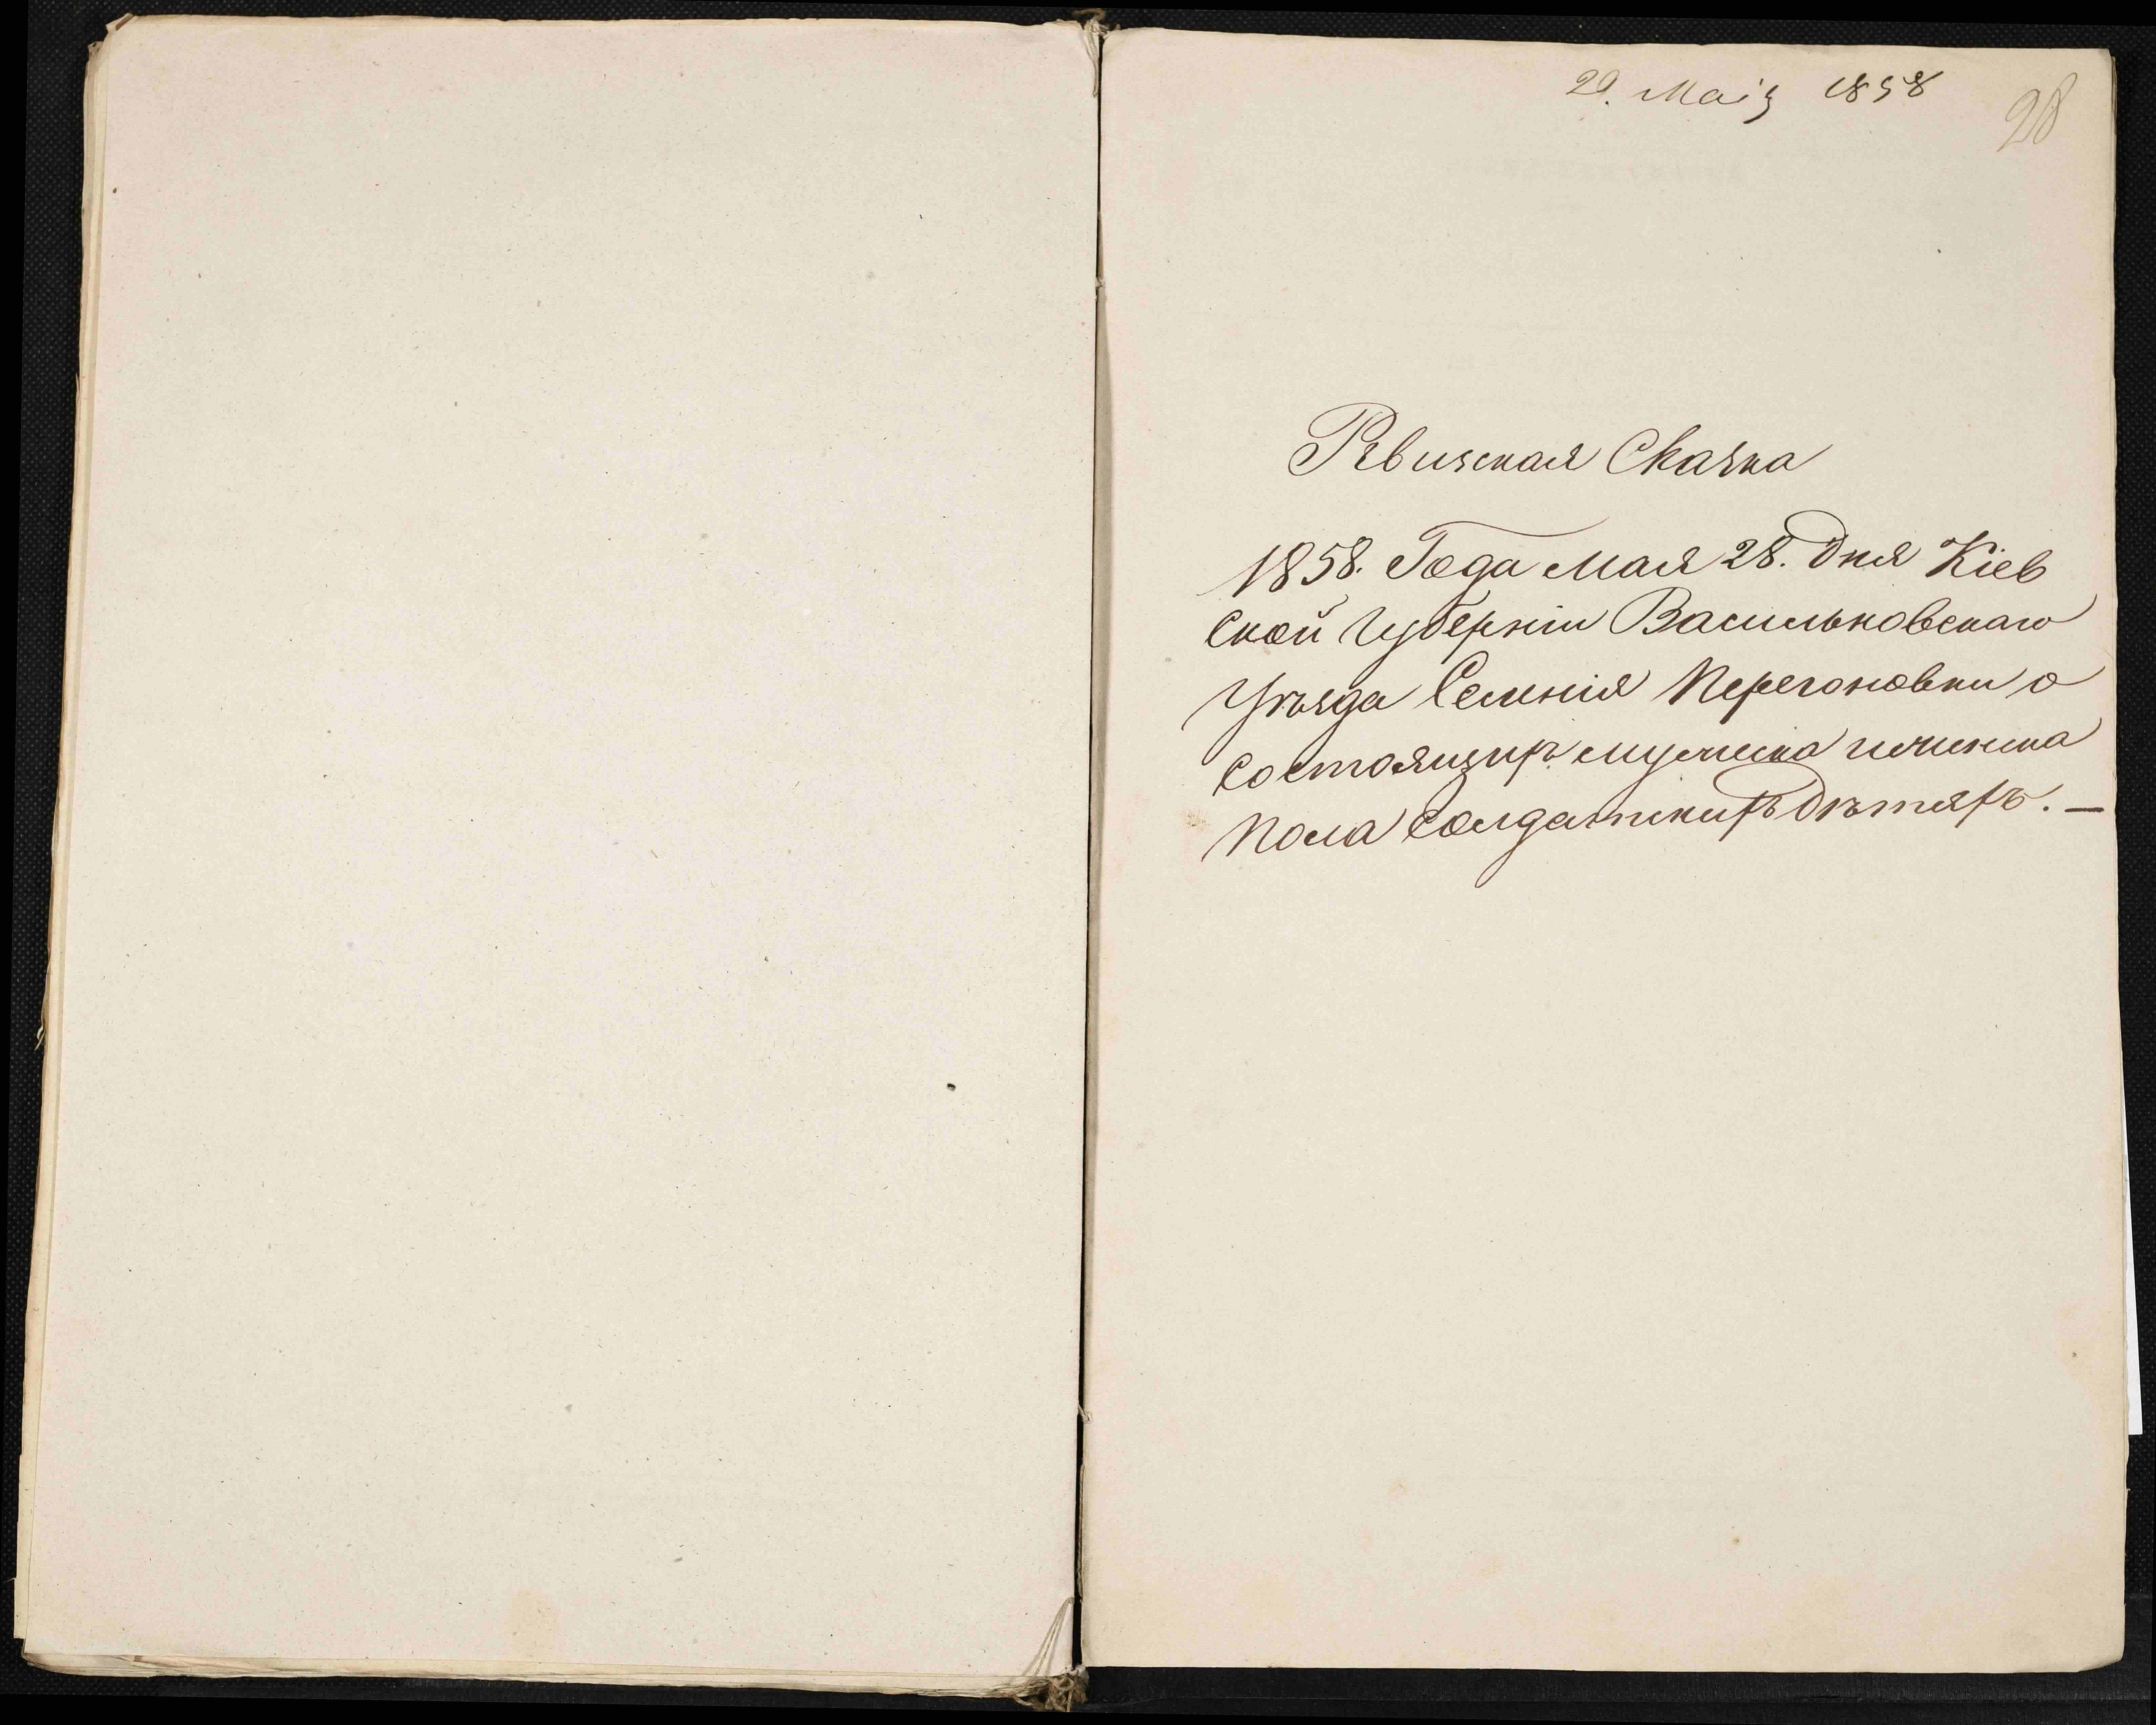 29. Маія 1858
98
Ревизская Сказка
1858. Года Мая 28. Дня Кіев
ской Губерніи Васильковскаго
Уѣзда Селенія Перегоновки о
состоящихъ мужеска и женска
пола Солдатскихъ Дѣтяхъ. —